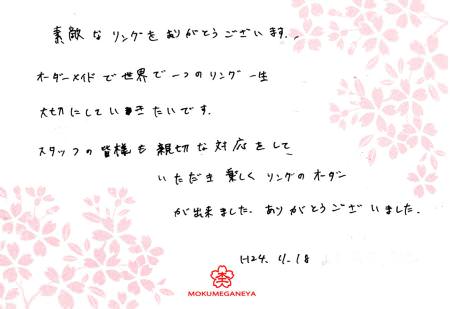 素敵なリングをありがとうございます。
オーダーメイドで世界で一つのリング一生
大切にしていきたいです。
スタッフの皆様も親切な対応をして
いただき楽しくリングのオーダー
が出来ました。ありがとうございました。
H24. 4. 18
MOKUMEGANEYA